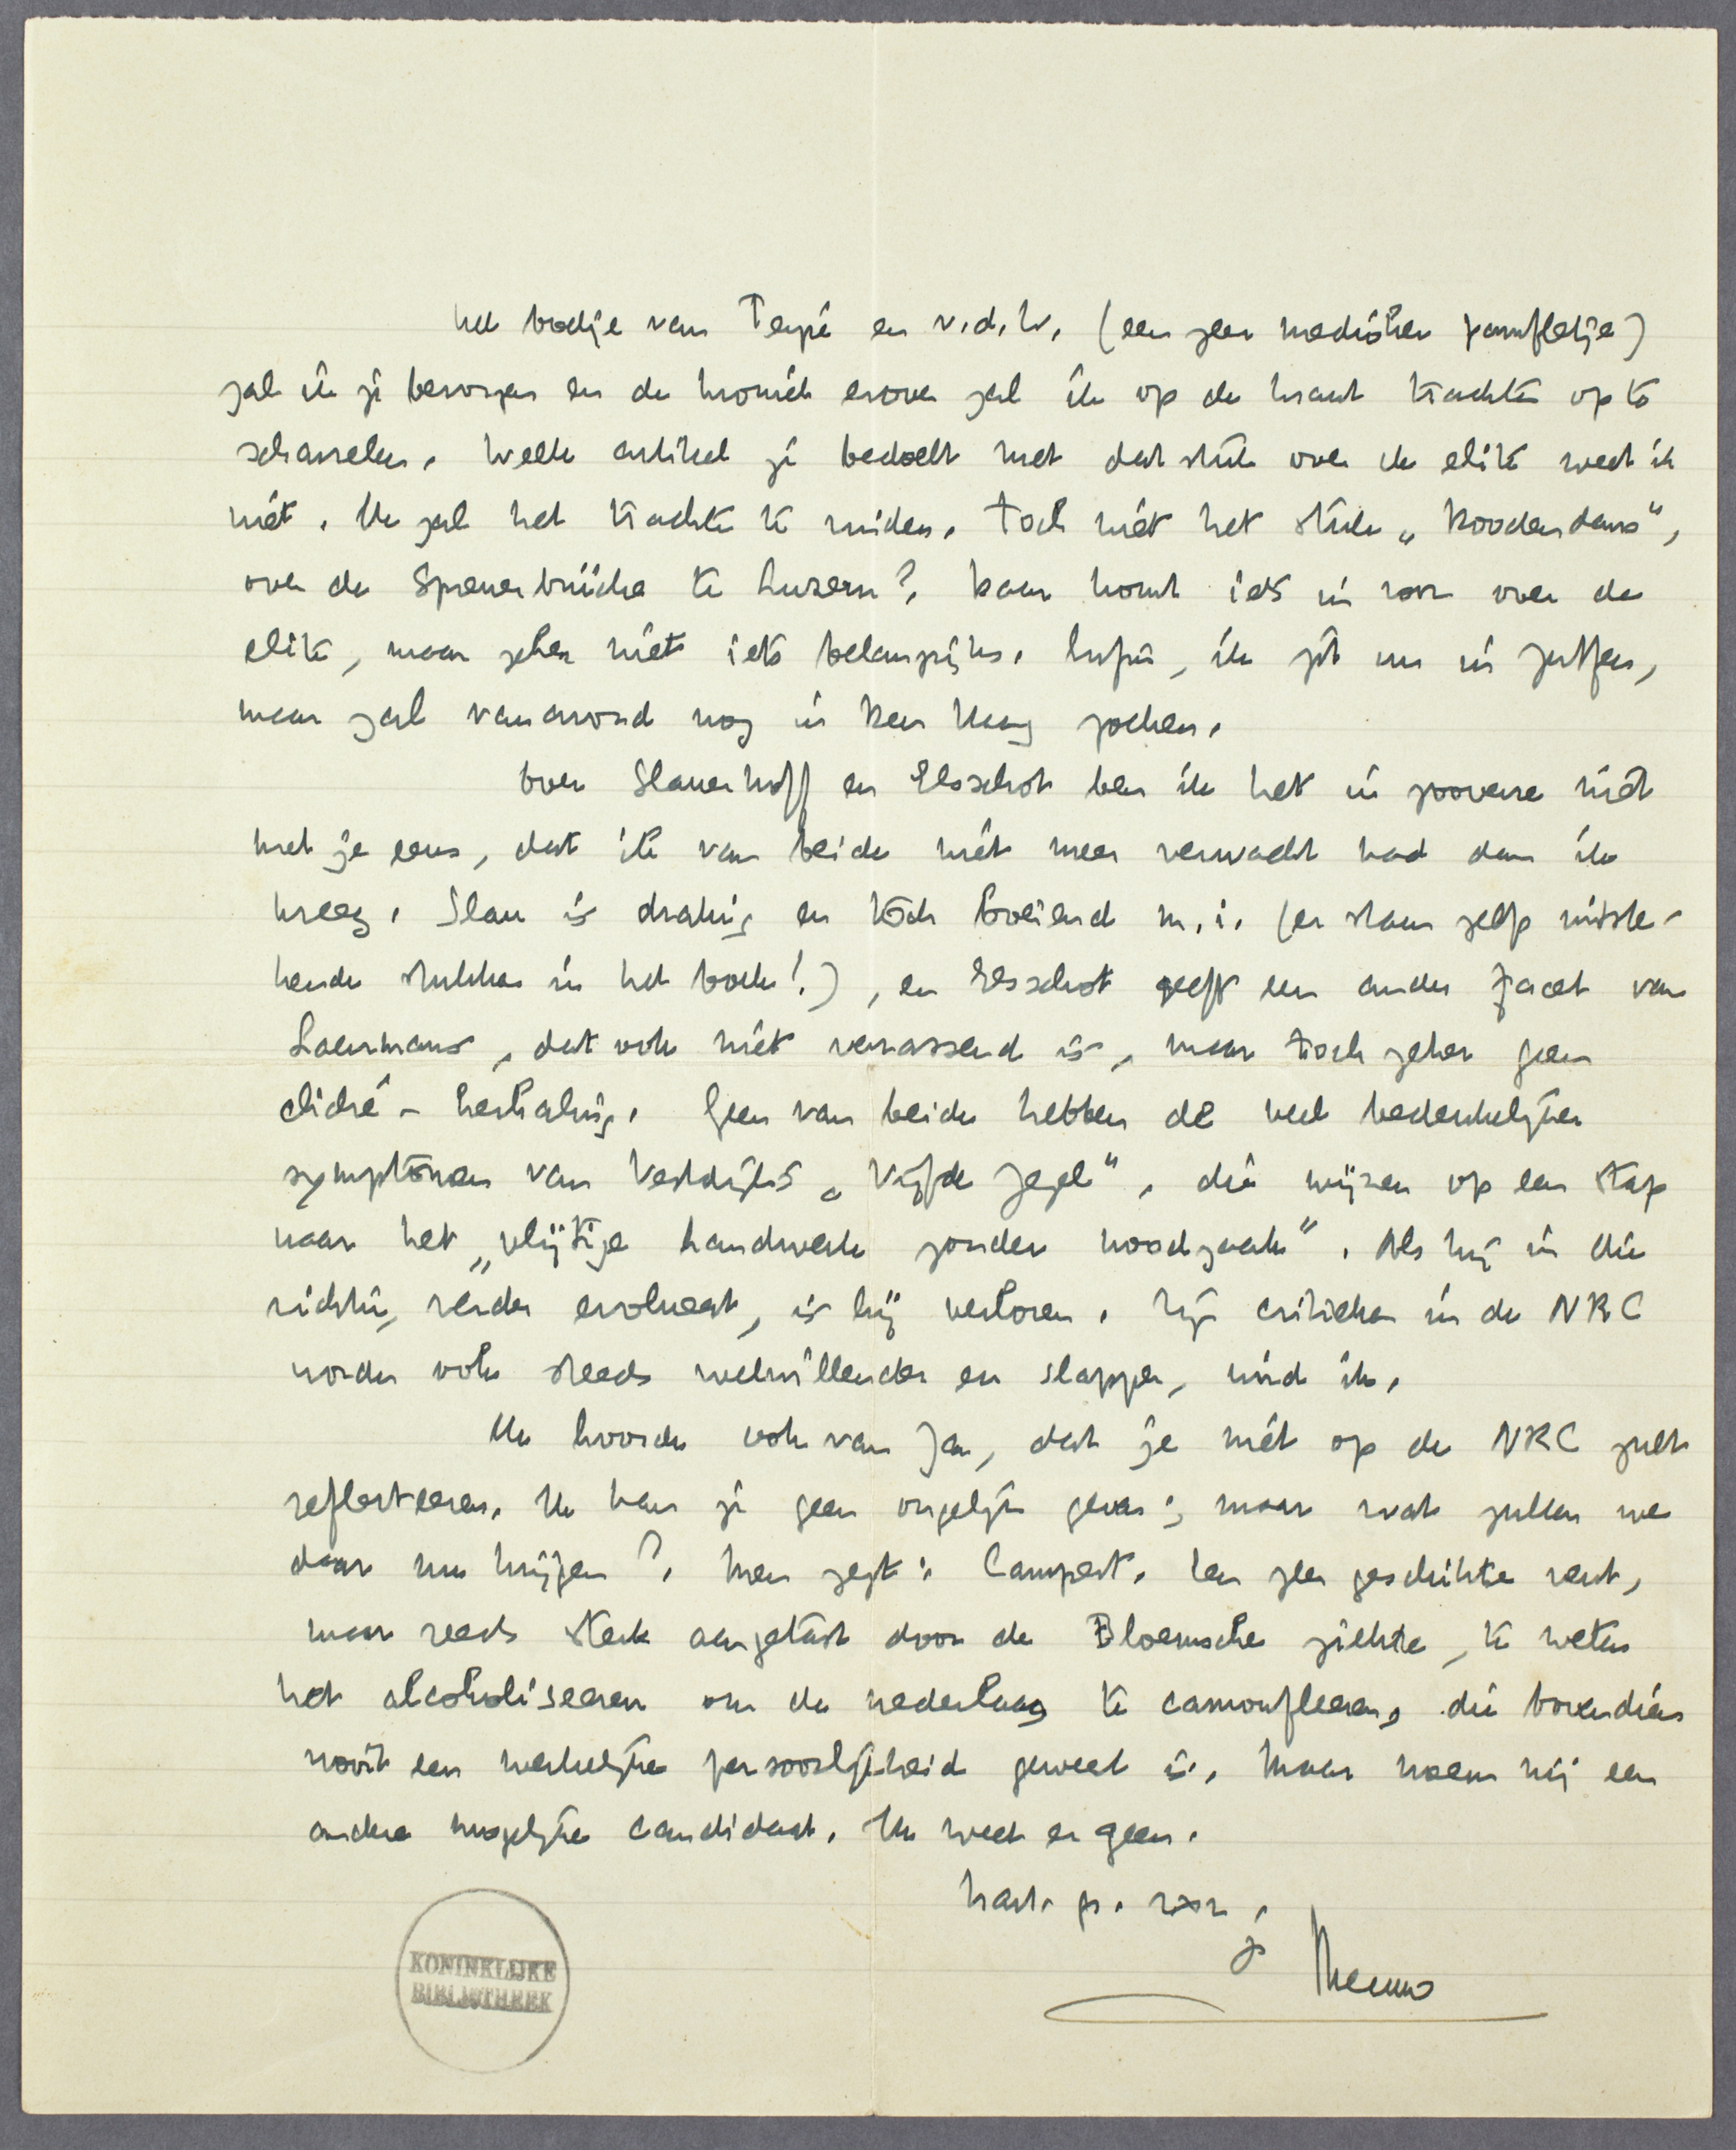 Het boekje van Tempé en v.d. W. (een zeer mediocre pamfletje)
zal ik je bezorgen en de kroniek erover zal ik op de krant trachten op te
scharrelen. Welk artikel je bedoelt met dat stuk over de elite weet ik
niet. Ik zal het trachten te vinden. Toch niet het stuk „Doodendans",
over de Spreuerbrücke te Luzern? Daar komt iets in voor over de
elite, maar zeker niets iets belangrijks. Enfin, ik zit nu in Zutfen,
maar zal vanavond nog in Den Haag zoeken.
Over Slauerhoff en Elsschot ben ik het in zooverre niet
met je eens, dat ik van beide niet meer verwacht had dan ik
kreeg. Slau is draakig en tòch boeiend m.i. (er staan zelfs uitste-
kende stukken in het boek!), en Elsschot geeft een ander facet van
Laarmans, dat ook niet verrassend is, maar toch zeker geen
cliché-herhaling. Geen van beide hebben de veel bedenkelijker
symptomen van Vestdijk's „Vijfde Zegel", die wijzen op een stap
naar het „vlijtige handwerk zonder noodzaak". Als hij in die
richting verder evolueert, is hij verloren. Zijn critieken in de NRC
worden ook steeds welwillender en slapper, vind ik.
Ik hoorde ook van Jan, dat je niet op de NRC zult
reflecteeren. Ik kan je geen ongelijk geven; maar wat zullen we
daar nu krijgen? Men zegt: Campert. Een zeer geschikte vent,
maar reeds sterk aangetast door de Bloemsche ziekte, te weten
het alcoholiseeren om de nederlaag te camoufleeren, die bovendien
nooit een werkelijke persoonlijkheid geweest is. Maar noem mij een
andere mogelijke candidaat. Ik weet er geen.
hart. gr. v×v,
je Menno
KONINKLIJKE
BIBLIOTHEEK